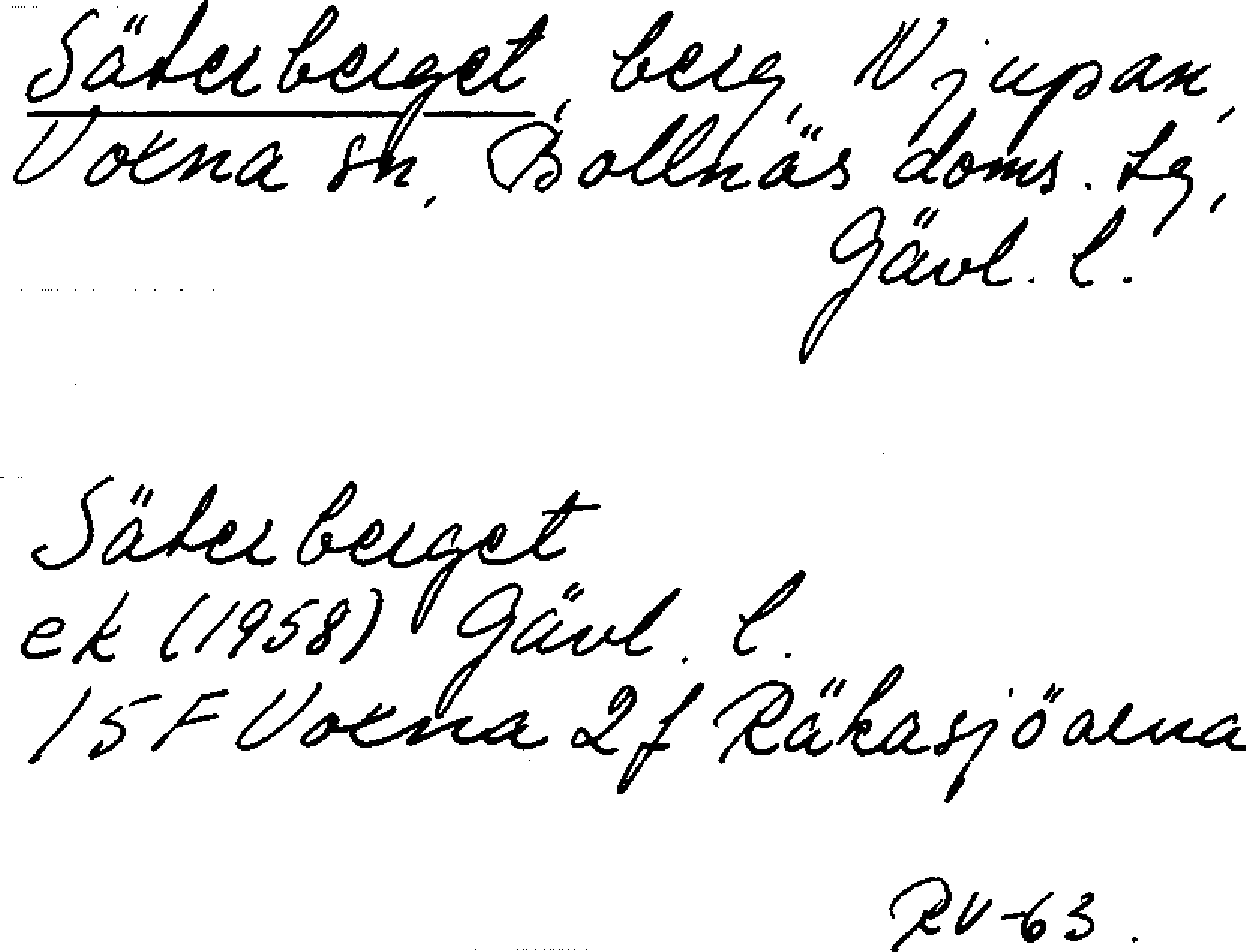 Säterberget, berg, Njupan,
Voxna sn, Bollnäs doms. tg,
Gävl. l.
Säterberget
ek (1958) Gävl. l.
15F Voxna 2f Räkasjöarna
RV-63.